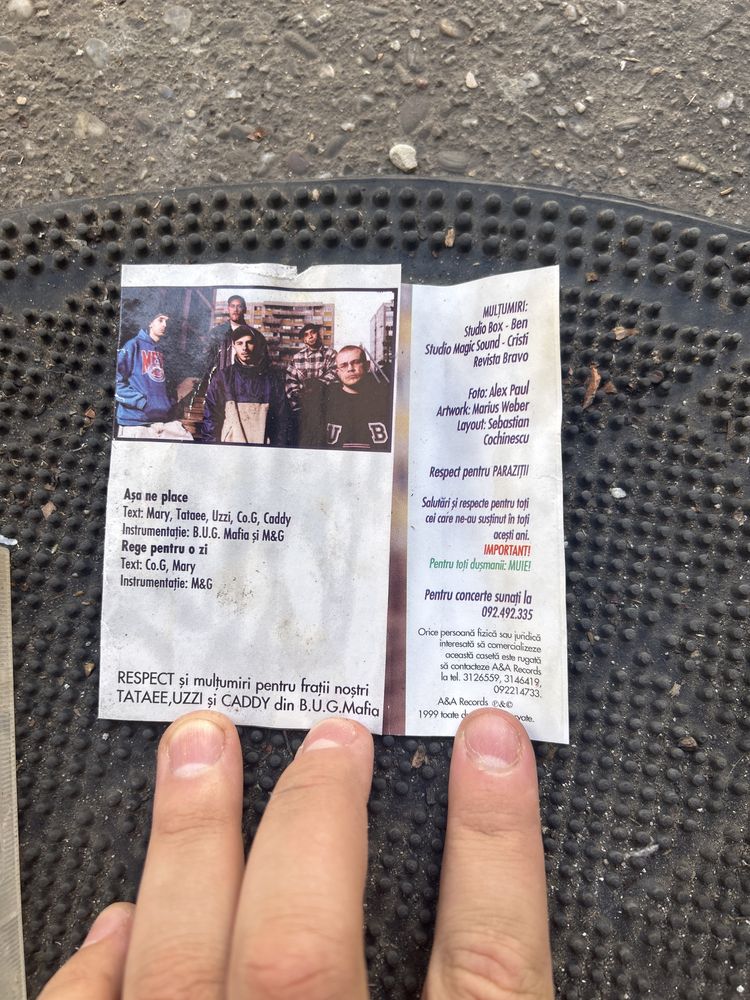 Așa ne place
Text: Mary, Tataee, Uzzi, Co.G, Caddy
Instrumentație: B.U.G. Mafia și M&G
Rege pentru o zi
Text: Co.G, Mary
Instrumentație: M&G
RESPECT și mulțumiri pentru frații noștri
TATAEE,UZZI și CADDY din B.U.G.Mafia
MULȚUMIRI:
Studio Box - Ben
Studio Magic Sound - Cristi
Revista Bravo
Foto: Alex Paul
Artwork: Marius Weber
Layout: Sebastian
Cochinescu
Respect pentru PARAZIȚII
Salutări și respecte pentru toți
cei care ne-au susținut în toți
acești ani.
IMPORTANT!
Pentru toți dușmanii: MUIE!
Pentru concerte sunați la
092.492.335
Orice persoană fizică sau juridică
interesată să comercializeze
această casetă este rugată
să contacteze A&A Records
la tel. 3126559, 3146419,
092214733.
A&A Records ℗&©
1999 toate
U B